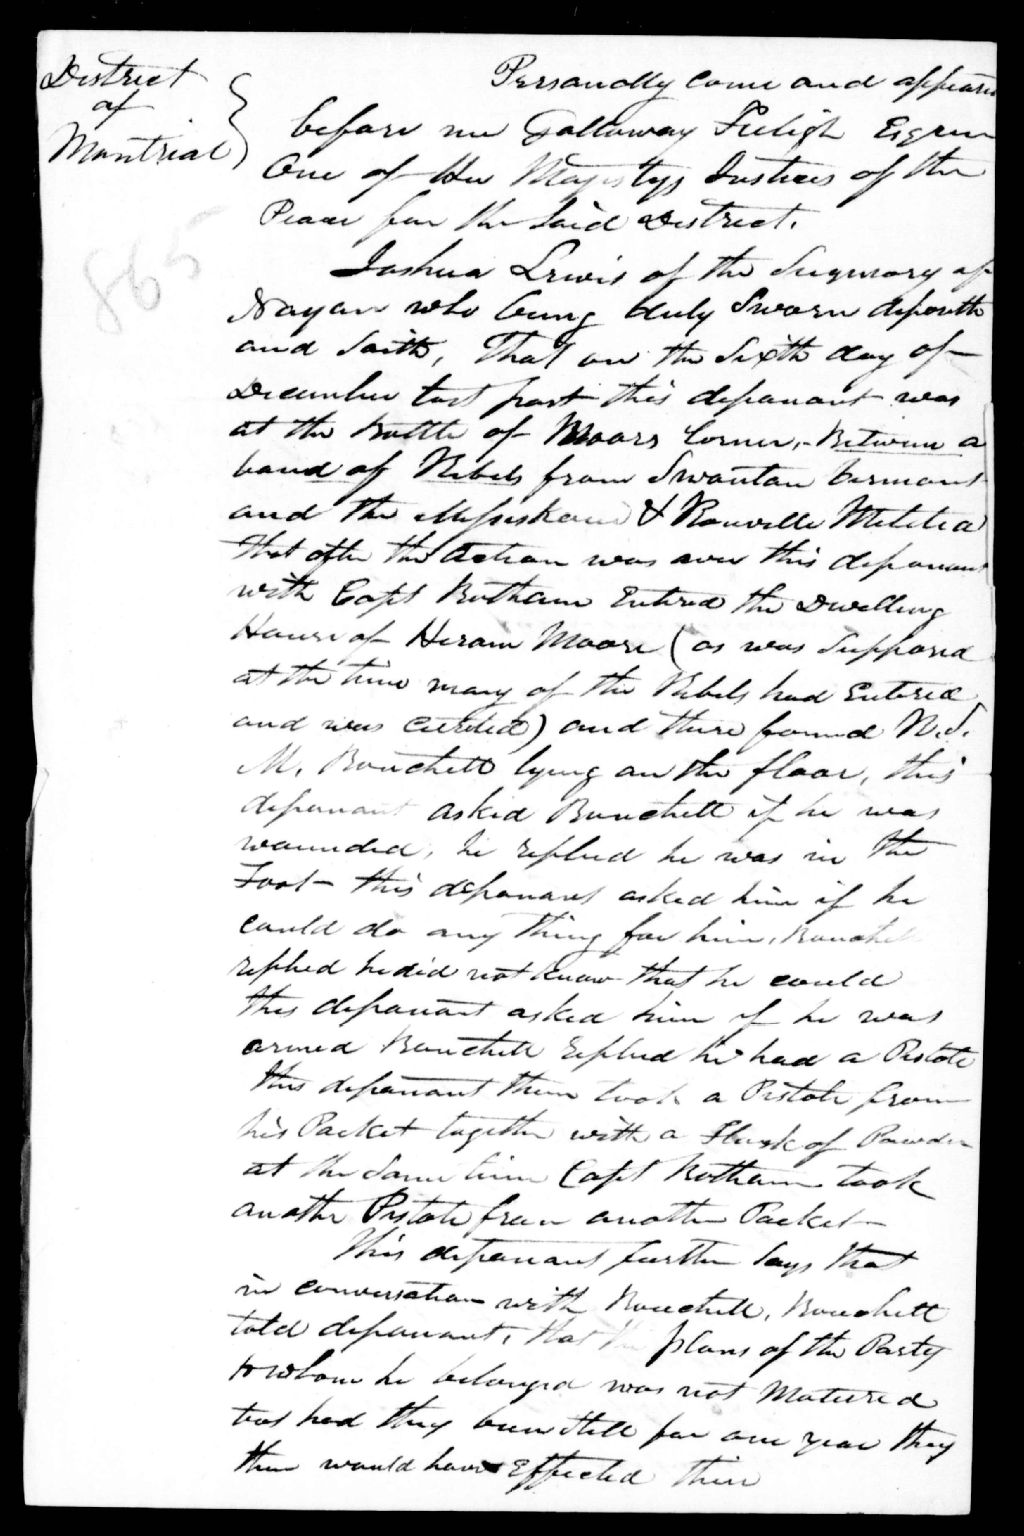 District
of
Montreal
Personally came and appeared
before me Galloway Freligh Esqr
One of Her Majestys Justices of the
Peace for the Said District.
865
Joshua Lewis of the Seignory of
Noyan who being duly Sworn deposeth
and Saith, That on the Sixth day of
December last past this deponant was
at the Battle of Moors Corner, - Between a
band of Rebels from Swanton Vermont
and the Missiskoui & Rouville Militia
that after the Action was over this deponant
with Capt Botham Entered the Dwelling
House of Hiram Moore (as was Supposed
at the time many of the Rebels had Entered
and was secreted) and there found R. S.
M. Bouchett lying on the floor, this
deponant asked Bouchett if he was
wounded, he replied he was in the
Foot - this deponant asked him if he
could do any thing for him, Bouchett
replied he did not know that he could
this deponant asked him if he was
armed Bouchett replied he had a Pistole
this deponant then took a Pistole from
his Pocket together with a Flask of Powder
at the Same time Capt Botham took
another Pistole from another Pocket -
This deponant further Says that
in conversation with Bouchett, Bouchett
told deponant, that the plans of the Party
to whom he belonged was not Matured
but had they been still for one year they
then would have Effected their